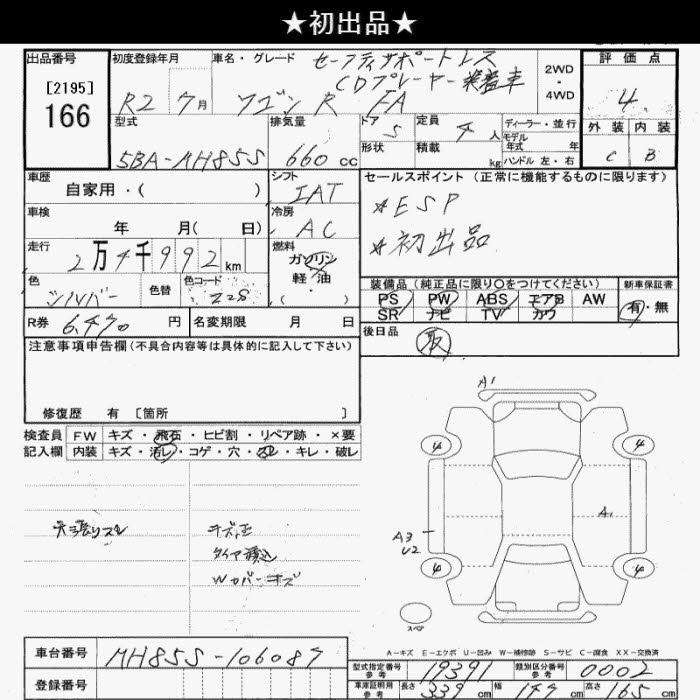 ★初出品★
出品番号
[2195]
166
初度登録年月
R2 7月
車名・グレード
セーフティサポートレス
CDプレーヤー装着車
ワゴンR FA
2WD
・
4WD
評価点
4
外装 内装
C B
型式
5BA-MH85S
排気量
660 cc
ドア
5
形状
定員
4 人
積載
kg
ディーラー・並行
モデル
年式 年
ハンドル 左・右
車歴
自家用・( )
シフト
IAT
車検
年 月( 日)
冷房
AC
走行
2万4千992km
燃料
ガソリン
軽・油
・
( )
色
シルバー
色替
色コード
Z2S
R券 6,470 円
名変期限 月 日
セールスポイント(正常に機能するものに限ります)
*ESP
*初出品
装備品(純正品に限り○をつけてください)
PS PW ABS エアB AW
SR ナビ TV カワ
新車保証書
有・無
後日品
取
注意事項申告欄(不具合内容等は具体的に記入して下さい)
修復歴 有 〔箇所 〕
検査員
記入欄
FW キズ・飛石・ヒビ割・リペア跡・×要
内装 キズ・汚レ・コゲ・穴・スレ・キレ・破レ
天張リスレ
キズ凹
タイヤ積込
Wカバーキズ
A1
4
4
A1
A3
U2
4
4
スペア
A-キズ E-エクボ U-凹み W-補修跡 S-サビ C-腐食 XX-交換済
車台番号 MH85S-106087
登録番号
型式指定番号
参考
19391
類別区分番号
参考
0002
車庫証明用
参考
長さ 339 cm
幅 147 cm
高さ 165 cm